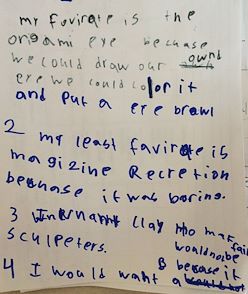 my favirate is the
origami eye because
we could draw our ownd
eye we could color it
and put a eye brawl
2 my least favirate is
magizine Recretion
because it was boring.
3 clay no mat
sculpeters. woaldnobe fair
4 I would want a B because it